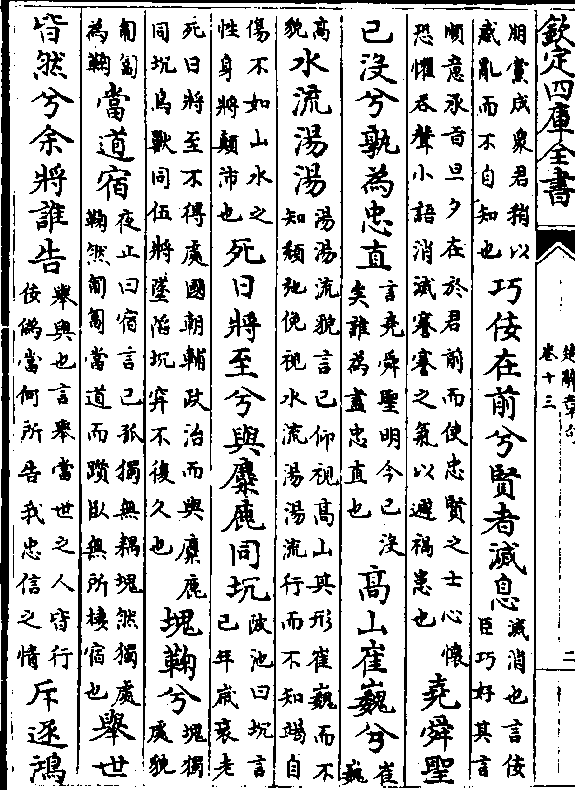 欽定四庫全書
楚辭章句
卷十三
二
朋黨成衆君稍以
惑亂而不自知也
巧佞在前兮賢者滅息
滅消也言佞
臣巧好其言
順意承旨旦夕在於君前而使忠賢之士心懷
恐懼吞聲小語消滅謇謇之氣以避禍患也
堯舜聖
已没兮孰為忠直
言堯舜聖明今已没
矣誰為盡忠直也
高山崔巍兮
崔
巍
高
貌
水流湯湯
湯湯流貌言已仰視高山其形崔巍而不
知頽弛俛視水流湯湯流行而不知竭自
傷不如山水之
性身將顛沛也
死日將至兮與麋鹿同坑
陂池曰坑言
已年歲衰老
死日將至不得處國朝輔政治而與麋鹿
同坑鳥獸同伍將墜陷坑穽不復久也
塊鞠兮
塊獨
處貌
匍匐
為鞠
當道宿
夜止曰宿言已孤獨無耦塊然獨處
鞠然匍匐當道而躓臥無所棲宿也
舉世
皆然兮余將誰告
舉與也言舉當世之人皆行
佞偽當何所告我忠信之情
斥逐鴻